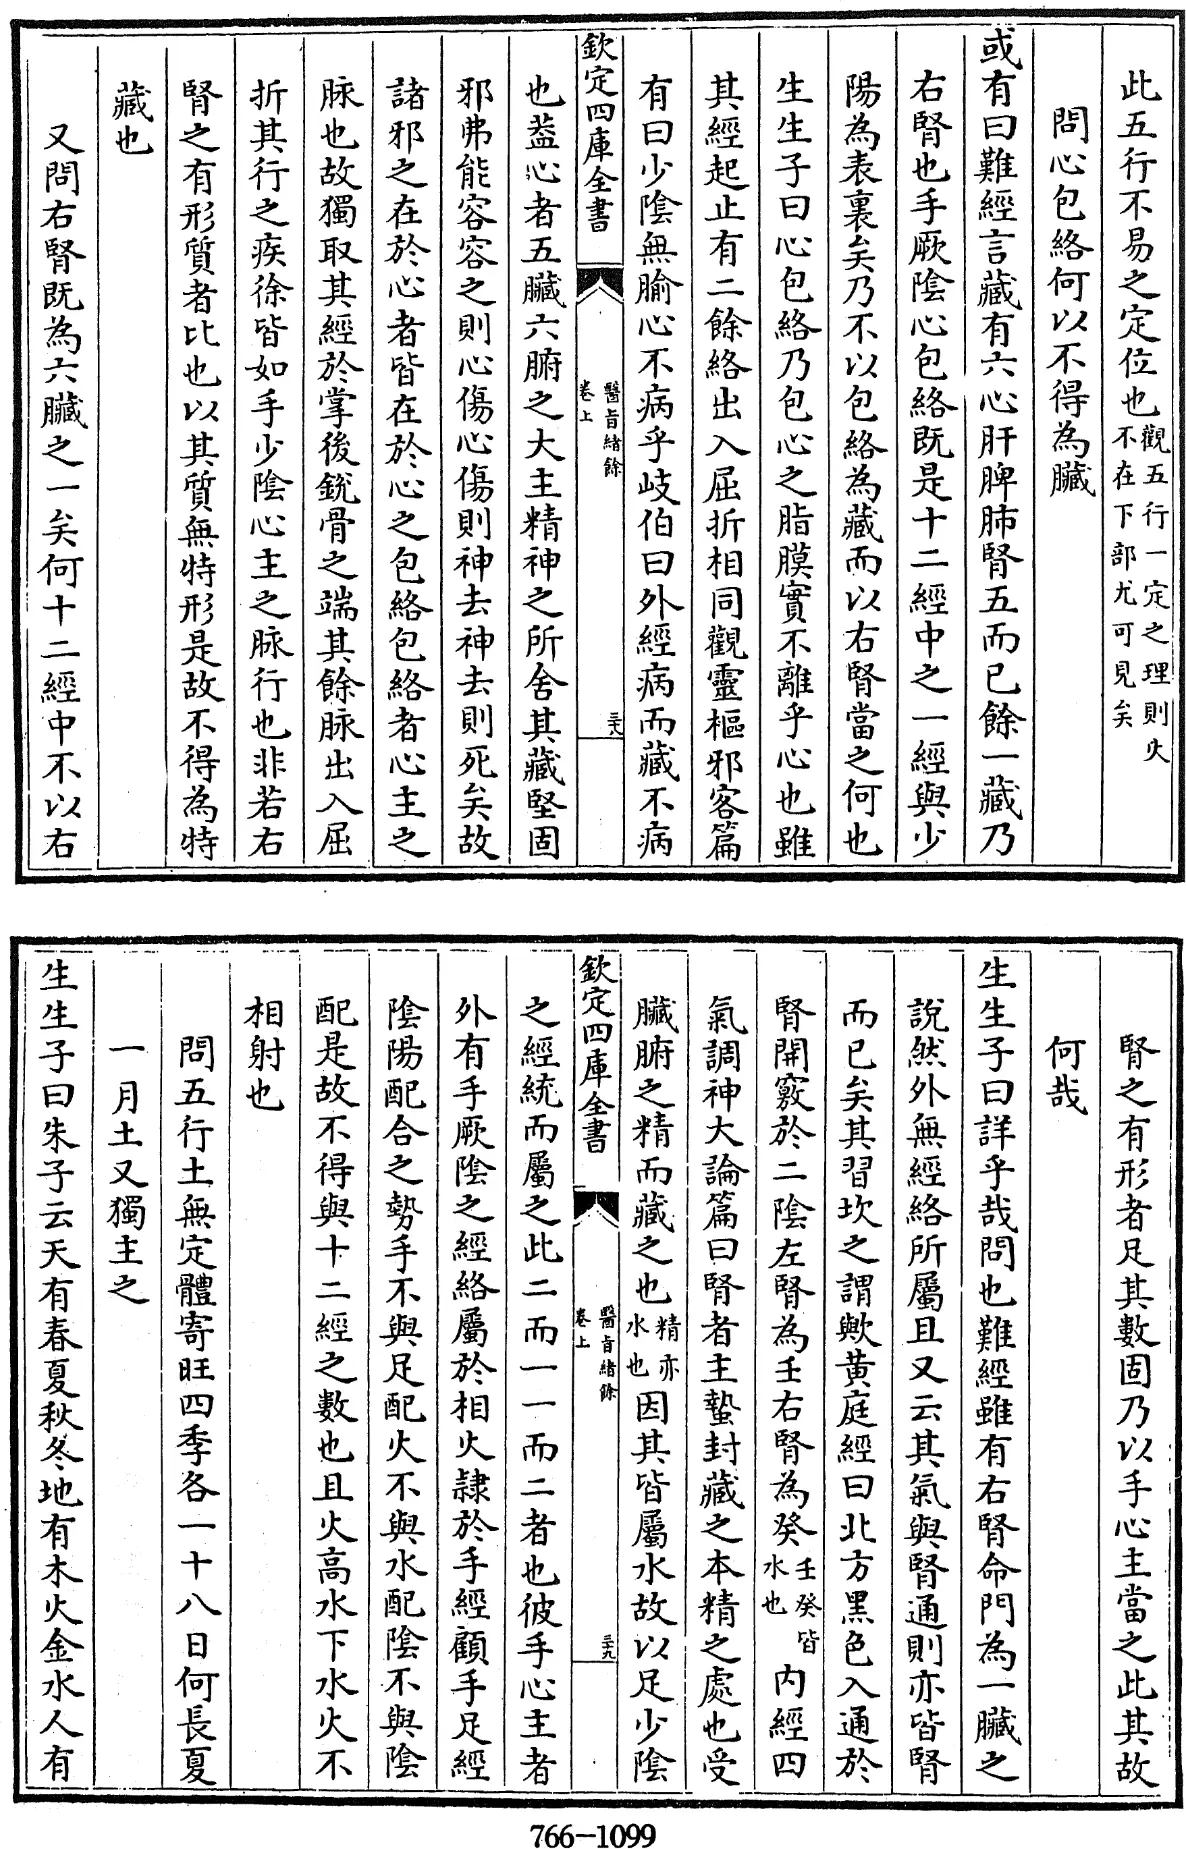 此五行不易之定位也觀五行一定之理則火不在下部尤可見矣
問心包絡何以不得為臟
或有曰難經言藏有六心肝脾肺腎五而已餘一藏乃
右腎也手厥陰心包絡既是十二經中之一經與少
陽為表裏矣乃不以包絡為藏而以右腎當之何也
生生子曰心包絡乃包心之脂膜實不離乎心也雖
其經起止有二餘絡出入屈折相同觀靈樞邪客篇
有曰少陰無腧心不病乎岐伯曰外經病而藏不病
欽定四庫全書
醫旨緒餘
卷上
三十八
也葢心者五臟六腑之大主精神之所舍其藏堅固
邪弗能容容之則心傷心傷則神去神去則死矣故
諸邪之在於心者皆在於心之包絡包絡者心主之
脉也故獨取其經於掌後銳骨之端其餘脉出入屈
折其行之疾徐皆如手少陰心主之脉行也非若右
腎之有形質者比也以其質無特形是故不得為特
藏也
又問右腎既為六臟之一矣何十二經中不以右
腎之有形者足其數固乃以手心主當之此其故
何哉
生生子曰詳乎哉問也難經雖有右腎命門為一臟之
說然外無經絡所屬且又云其氣與腎通則亦皆腎
而已矣其習坎之謂歟黃庭經曰北方黑色入通於
腎開竅於二陰左腎為壬右腎為癸壬癸皆水也內經四
氣調神大論篇曰腎者主蟄封藏之本精之處也受
臟腑之精而藏之也精亦水也因其皆屬水故以足少陰
欽定四庫全書
醫旨緒餘
卷上
三十九
之經統而屬之此二而一一而二者也彼手心主者
外有手厥陰之經絡屬於相火隸於手經顧手足經
陰陽配合之勢手不與足配火不與水配陰不與陰
配是故不得與十二經之數也且火高水下水火不
相射也
問五行土無定體寄旺四季各一十八日何長夏
一月土又獨主之
生生子曰朱子云天有春夏秋冬地有木火金水人有
766-1099